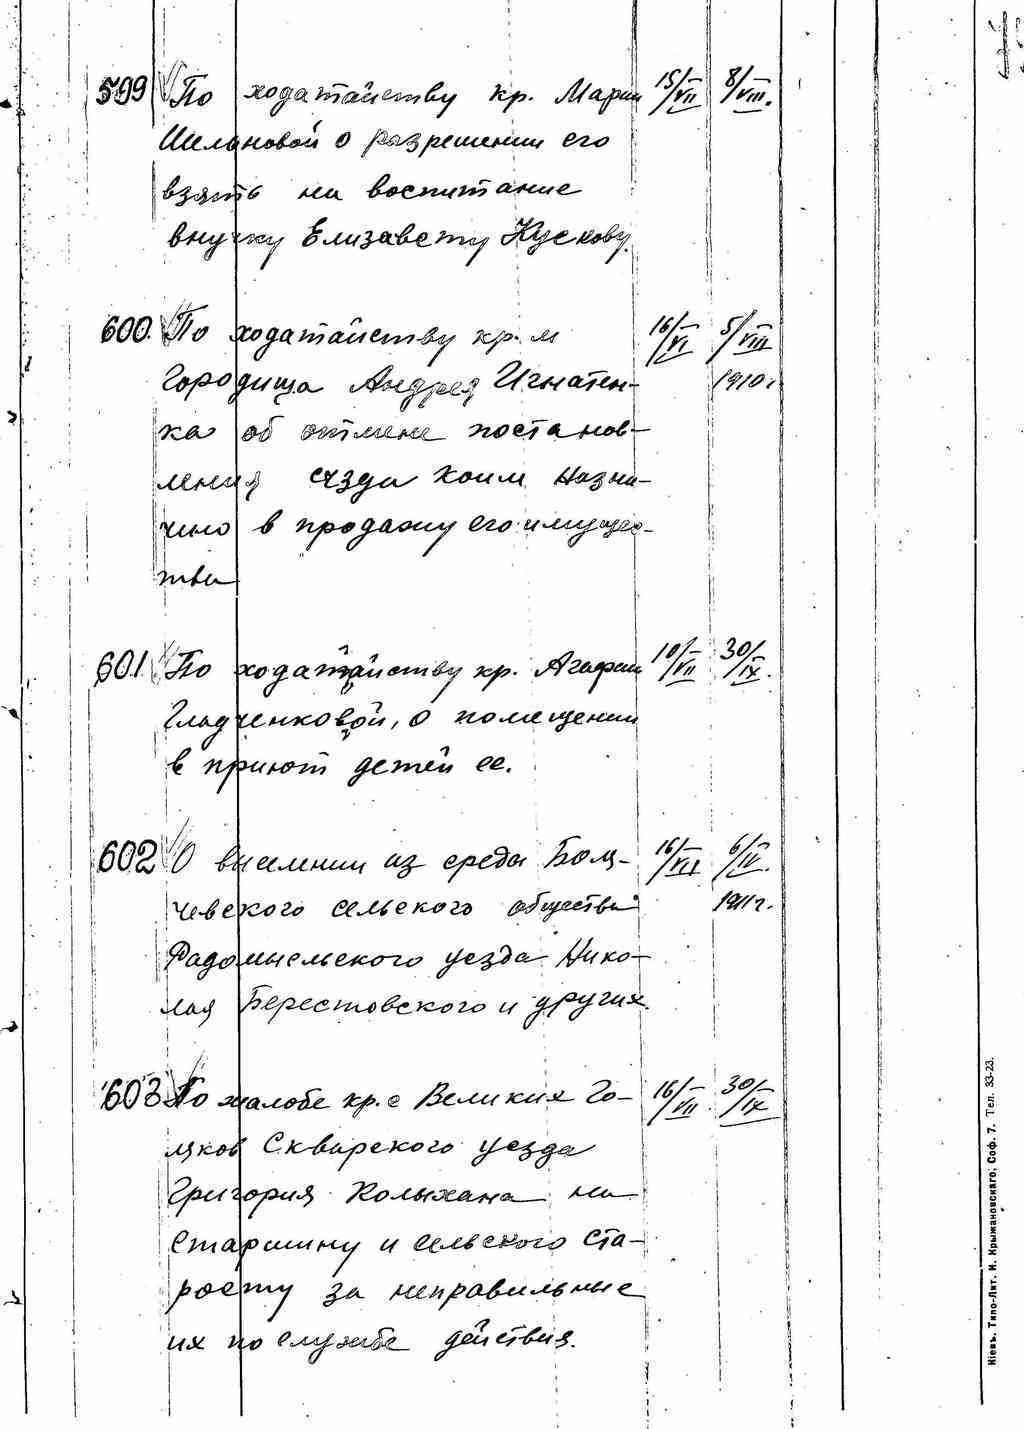 599 По ходатайству кр. Марии 15/VII 8/VIII.
Шельновой о разрешении его
взять на воспитание
внучку Елизавету Кускову.
600. По ходатайству кр. м 16/VI 5/VIII
Городища Андрея Игнатен- 1910 г
ка об отмене постанов-
ления сѣзда коим назна-
чено в продажу его имущес-
тва
601 По ходатайству кр. Агафии 10/VII 30/IX.
Гладченковой, о помещении
в приют детей ее.
602 О виселнии из среды 16/VII 6/IV.
чевского сельского общества 1911 г.
Радомысльского уезда Нико-
лая Берестовского и других.
603 По жалобе кр. с Великих Го- 16/VII 30/IX
ляков Сквирского уезда
Григория Колыхана на
Старшину и сельского Ста-
росту за неправильные
их по службе действия.
Кіевъ. Типо-Лит. И. Крыжановскаго, Соф. 7. Тел. 33-23.